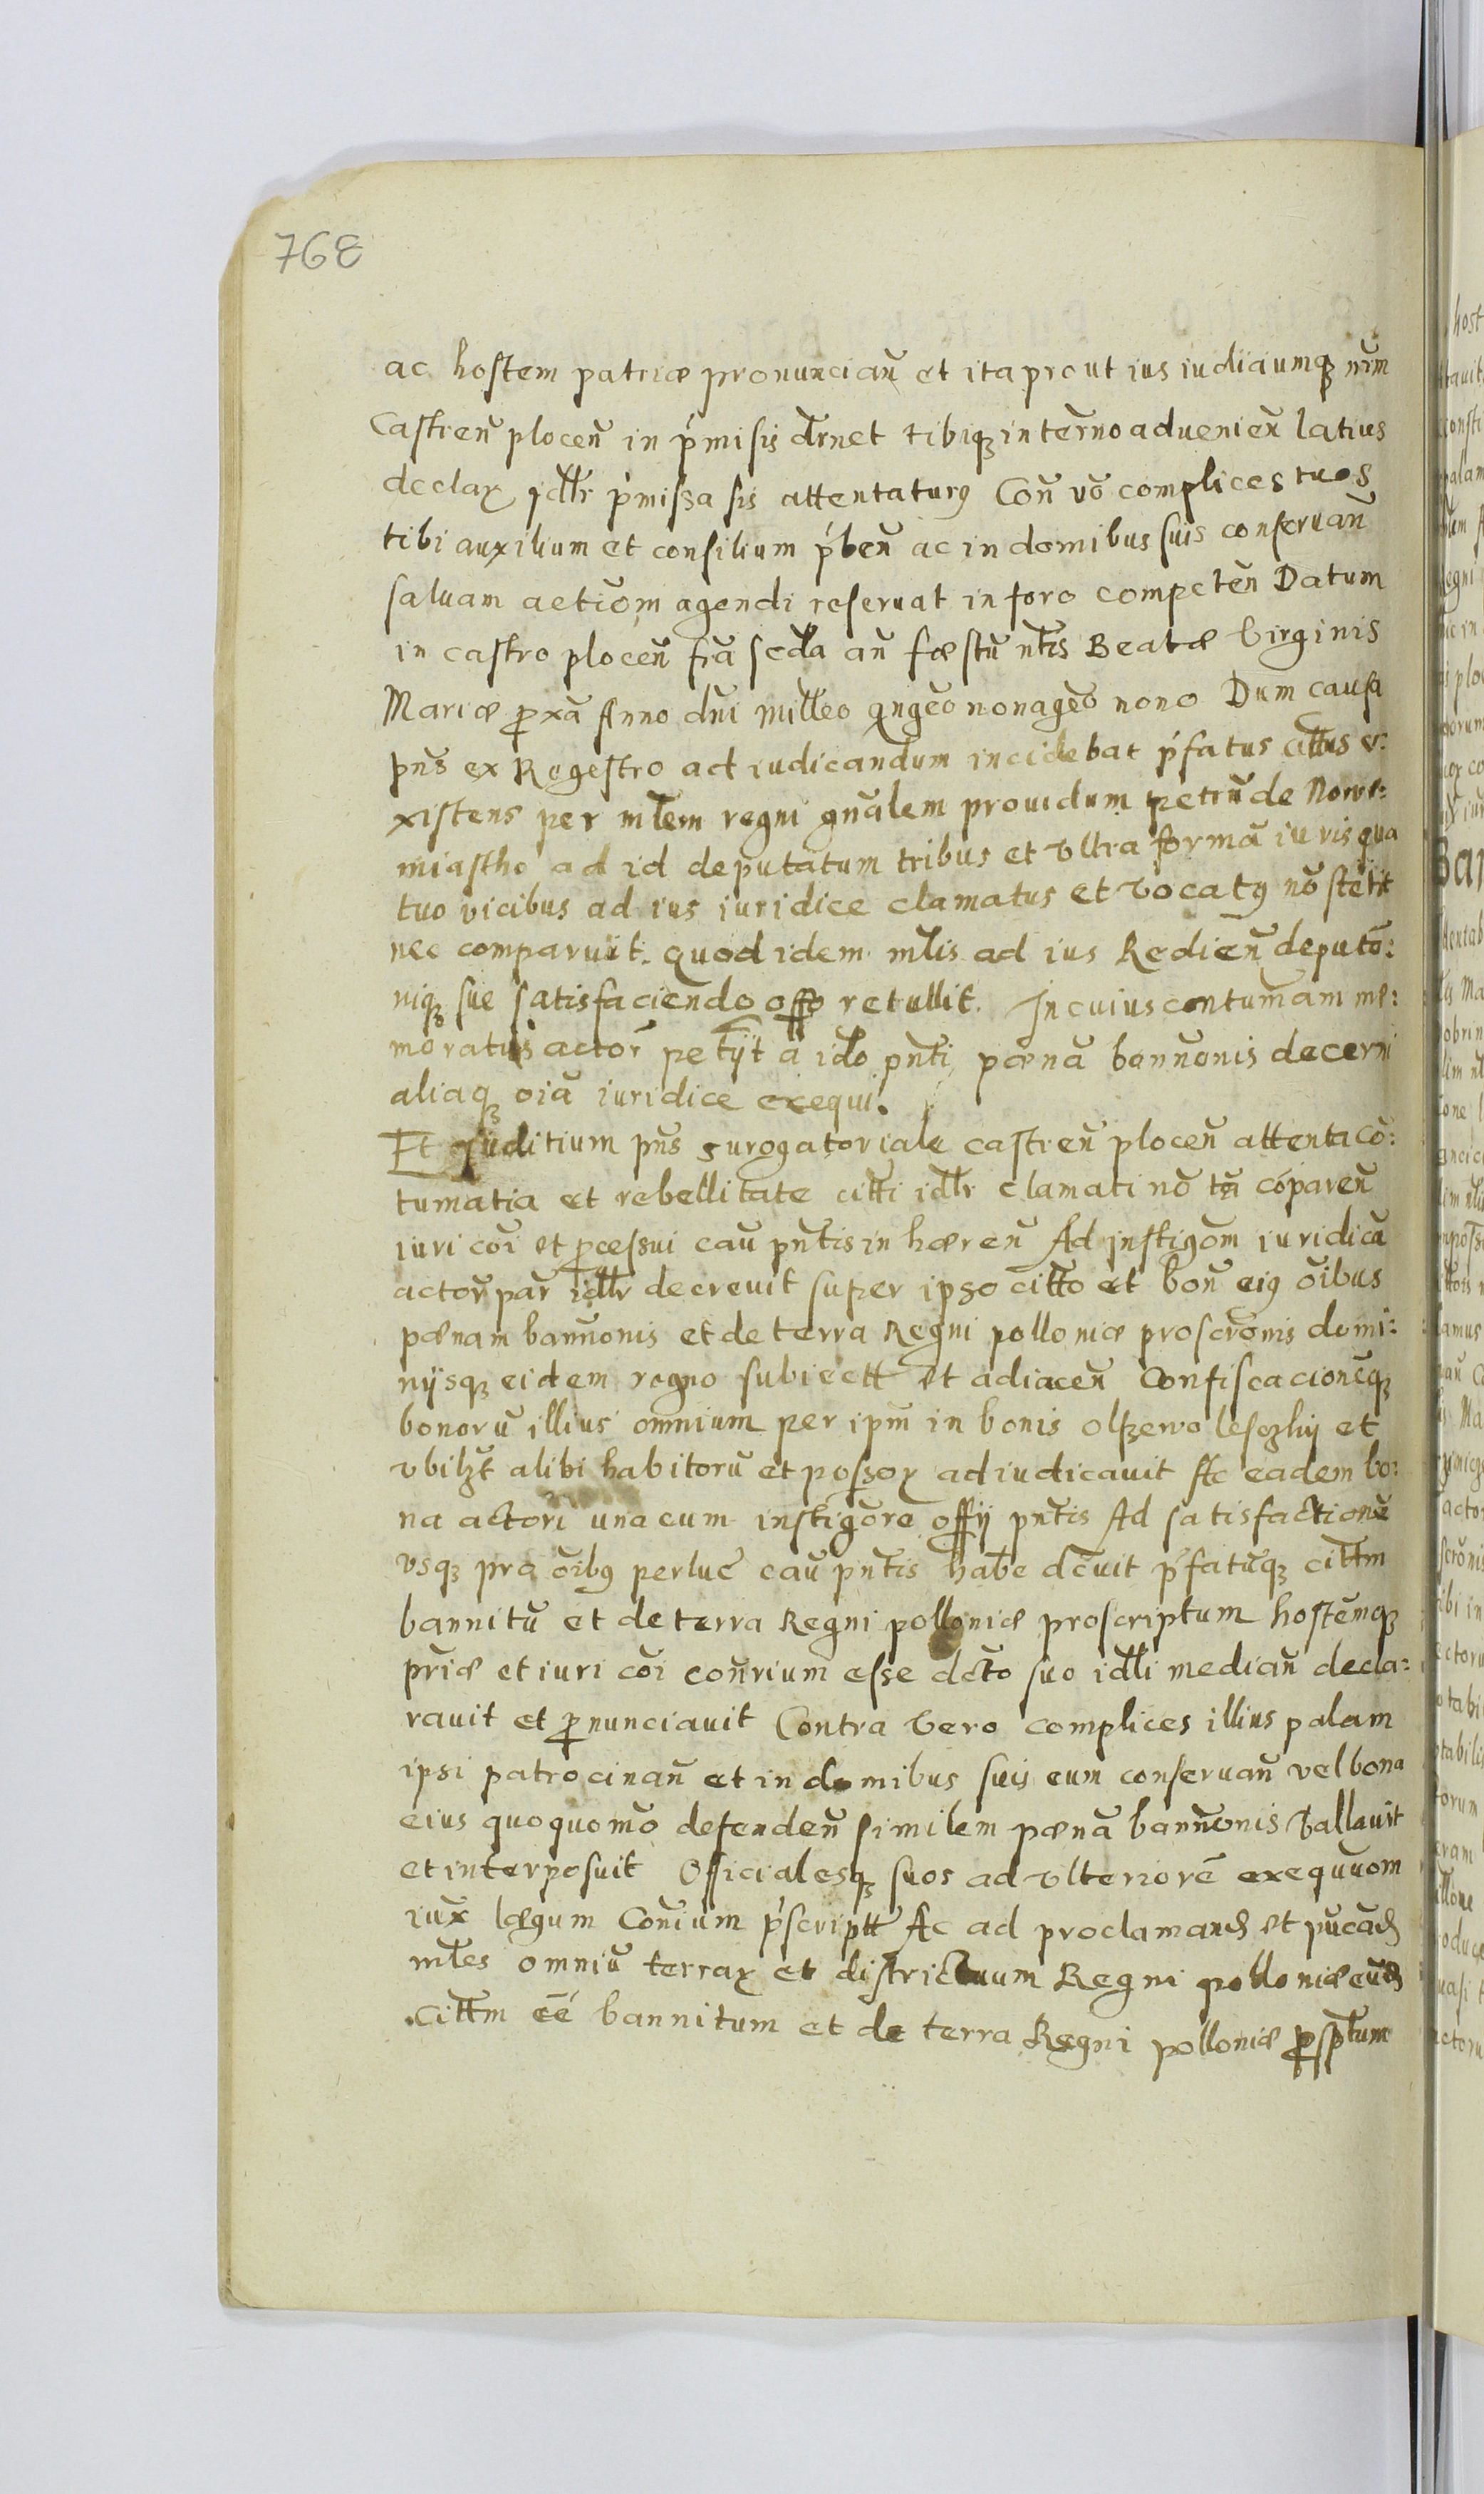 768
ac hostem patriæ pronuncian̄ et ita prout ius iudiciumq₃ nr̄m
Castren̄ plocen̄ in ṕmisis dr̄net tibiq₃ in terno aduenien̄ latius
declaꝝ idlr̄ ṕmissa sis attentaturꝰ Con̄ vō complices tuos
tibi auxilium et consilium ṕben̄ ac in domibus suis conseruan̄
saluam actiōm agendi reseruat in foro competen̄ Datum
in castro plocen̄ fr̄a scd̄a an̄ fæstū nt̄is Beatæ Virginis
Mariæ ꝓxā Anno dn̄i milleō qngēō nonagēō nono Dum causa
pn̄s ex Regestro ad iudicandum incidebat ṕfatus citt̄us e:
xistens per ml̄em regni gnālem prouidum petrū de Nowe:
miastho ad id deputatum tribus et vltra formā iuris qua
tuo vicibus ad ius iuridice clamatus et vocatꝰ nō stetit
nec comparuit. quod idem ml̄is ad ius Redien̄ deputō:
niq₃ sue satisfaciendo offō retullit. In cuius contumam me:
moratus actor̄ petÿt a id̄o pn̄ti pænā bannonis decerni
aliaq₃ oīa iuridice exequi.
Et Juditium pn̄s surogatoriale castren̄ plocen̄ attenta cō:
tumatia et rebellitate citt̄i idlr̄ clamati nō tn̄ cōparen̄
iuri cōi et ꝓcessui cau̇ pn̄tis in hæren̄ Ad instigōm iuridicā
actor̄ par̄ idlr̄ decreuit super ipso citt̄o et bon̄ eiꝰ ōibus
pænam bannonis et de terra Regni polloniæ proscrōnis domi:
nijsq₃ eidem regno subiectt̄ et adiacen̄ Confiscacionēq₃
bonorū illius omnium per ipm̄ in bonis olszewo lesczkij et
vbilzt̄ alibi habitorū et possoꝝ adiudicauit Ac eadem bo:
na actori una cum instigōre offij pn̄tis Ad satisfactionē
vsq₃ pro ōibꝰ perluc̄ cau̇ pn̄tis habē dēuit ṕfatūq₃ citt̄m
bannitū et de terra Regni polloniæ proscriptum hostēmq₃
pr̄iæ et iuri cōi con̄rium esse dctō suo idl̄i median̄ decla:
rauit et ꝓnunciauit Contra vero complices illius palam
ipsi patrocinan̄ et in domibus suis eum conseruan̄ vel bona
eius quoquomō defenden̄ similem pænā bannonis vallauit
et interposuit Officialesq₃ suos ad vlteriorē exequuom
iux̄ lægum Con̄ium ṕscriptt̄ Ac ad proclamand̄ et pucād̄
ml̄es omniū terraꝝ et districtuum Regni polloniæ eund̄
citt̄m eē bannitum et de terra Regni polloniæ ꝓsptum